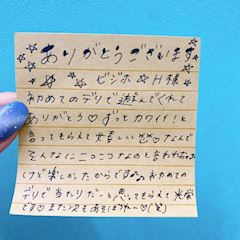 ありがとうございます
ビジホ☆H様
初めてのデリで遊んでくれて
ありがとう♡ずっとカワイイ！と
言ってもらえて嬉しい♡なんで
そんなにニコニコなのと言われちゃう
けど楽しかったからですな初めての
デリで当たりだーと思ってもらえて光栄
です♡またしてあそぼうねー♡(笑)